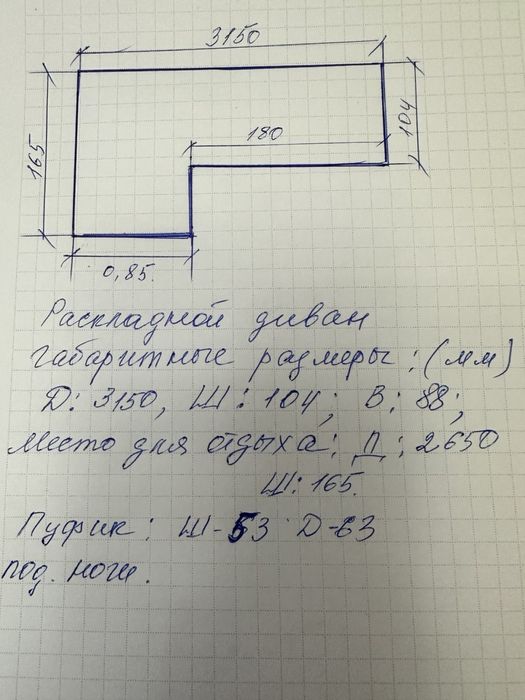 3150
165
180
104
0,85.
Раскладной диван
габаритные размеры: (мм)
Д: 3150, Ш: 104; В: 88;
Место для отдыха: Д: 2650
Ш: 165.
Пуфик: Ш-53 Д-63
под. ноги.